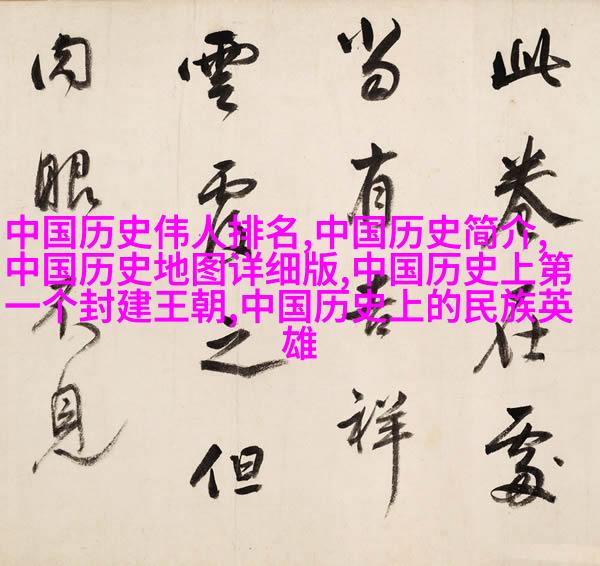 此卷在處
當有吉祥
雲覆之但
肉眼不見
中国历史伟人排名,中国历史简介,
中国历史地图详细版,中国历史上第
一个封建王朝,中国历史上的民族英
雄